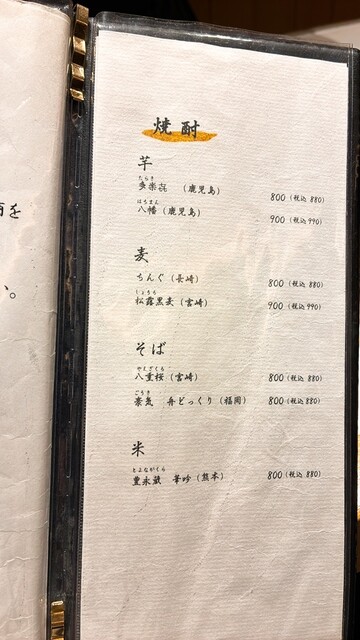 焼酎
芋
たらき
多楽㐂 （鹿児島） 800（税込 880）
はちまん
八幡（鹿児島） 900（税込 990）
麦
ちんぐ（長崎） 800（税込 880）
しょうろ
松露黒麦（宮崎） 900（税込 990）
そば
やえざくら
八重桜（宮崎） 800（税込 880）
ごうき
豪気 舟どっくり（福岡） 800（税込 880）
米
とよながくら
豊永蔵 華吟（熊本） 800（税込 880）
を
。